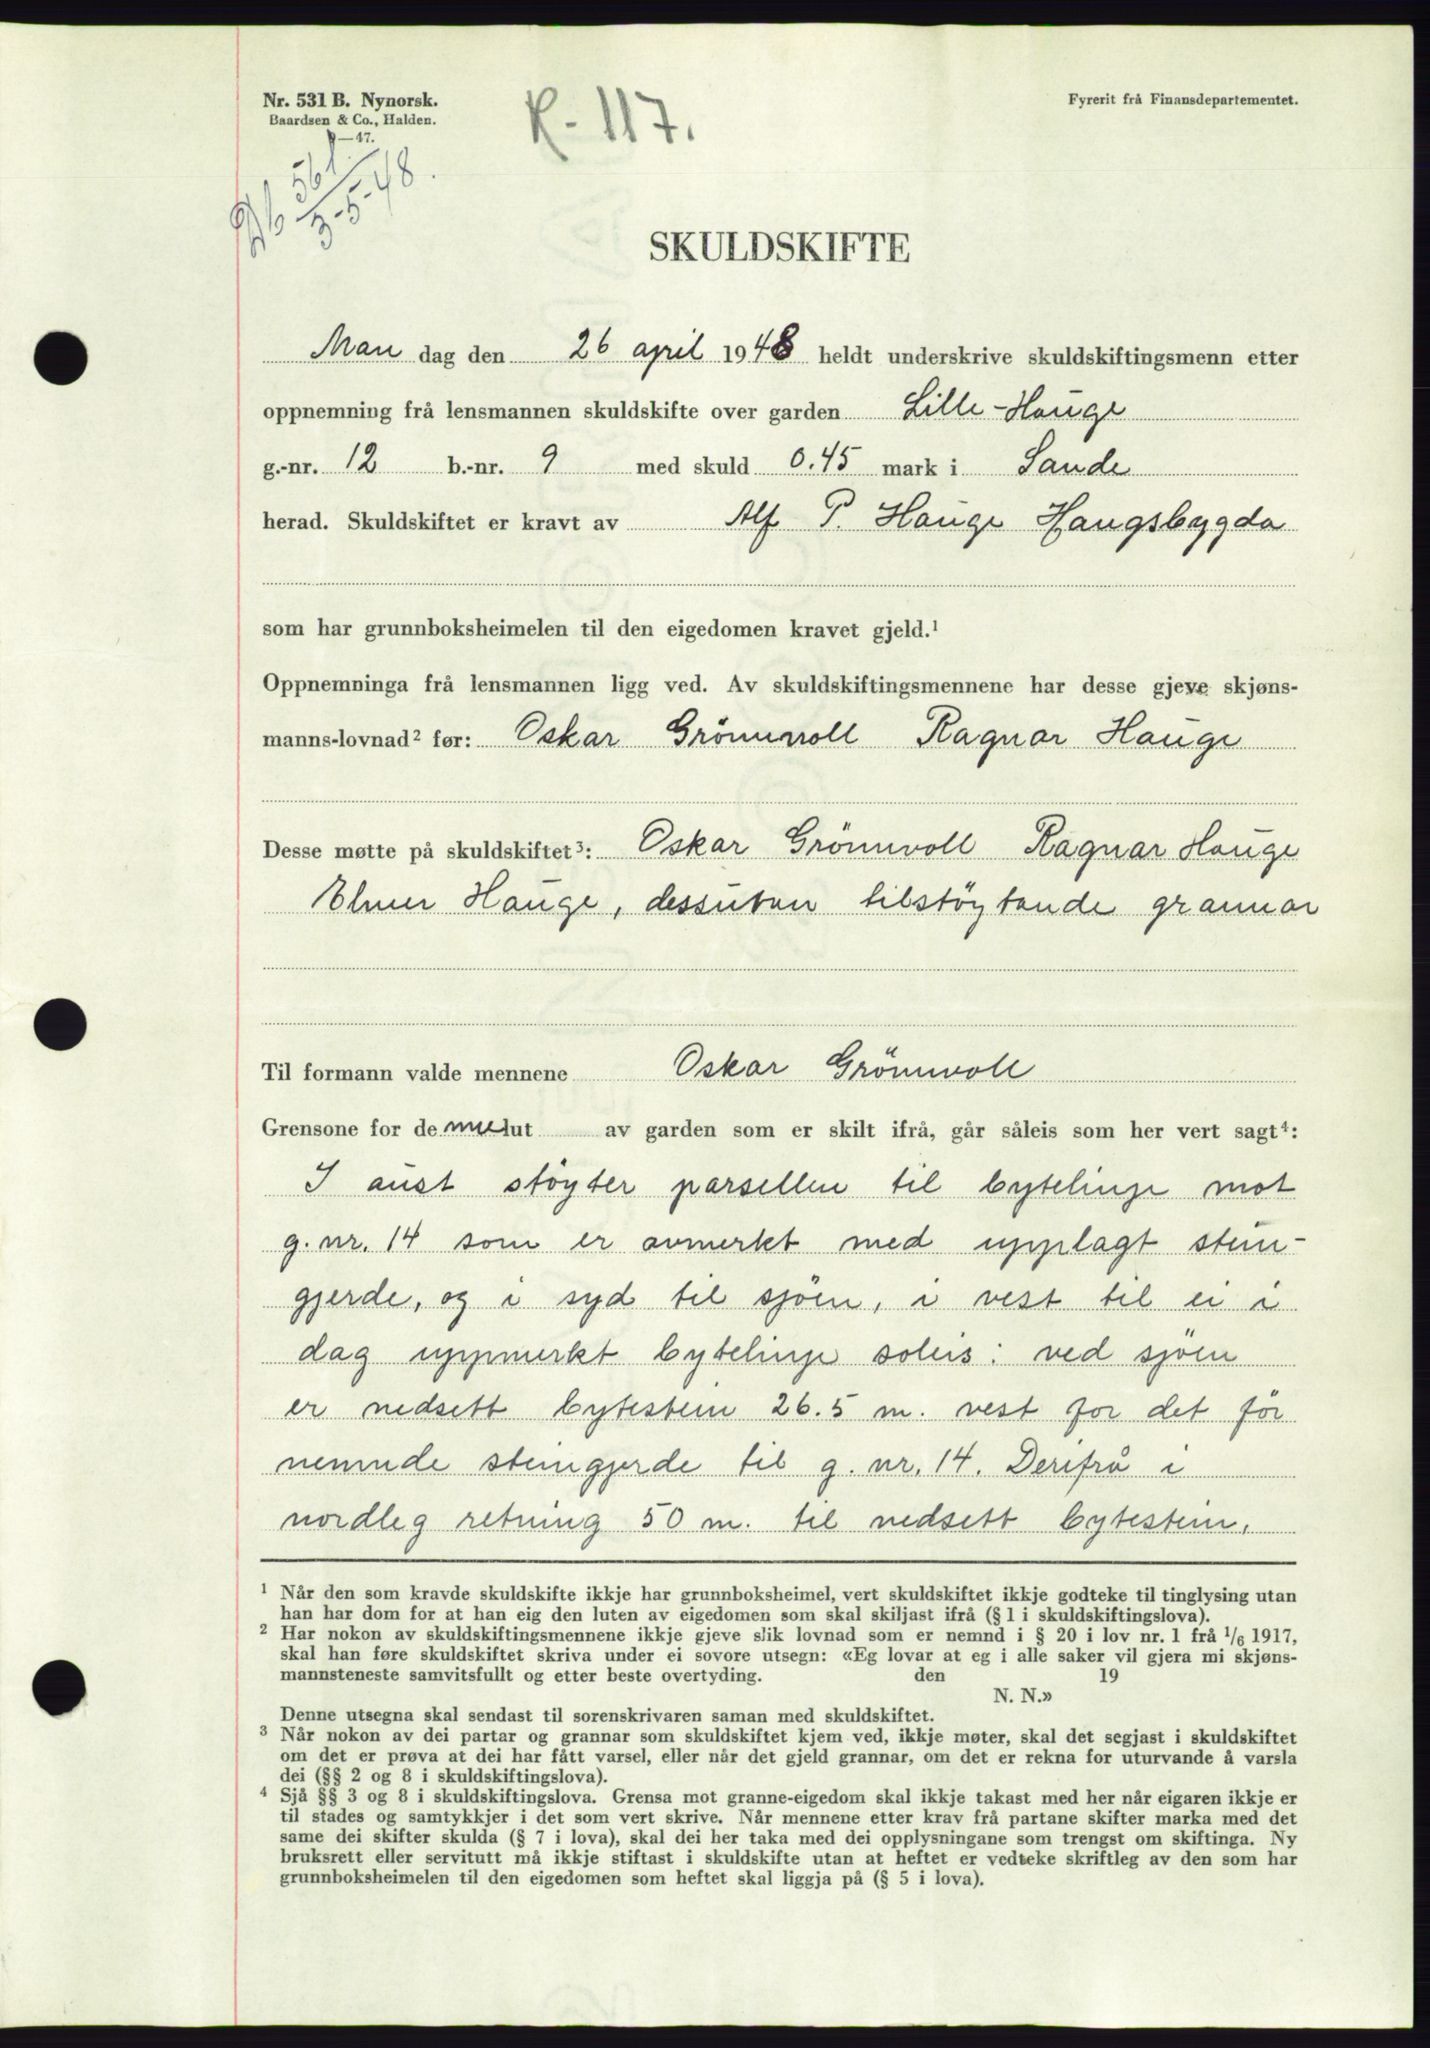 Nr. 531 B. Nynorsk.
Baardsen & Co., Halden.
9—47.
Fyrerit frå Finansdepartementet.
K-117.
Db 561
3-5-48.
SKULDSKIFTE
Man dag den 26 april 1948 heldt underskrive skuldskiftingsmenn etter
oppnemning frå lensmannen skuldskifte over garden Lille-Hauge
g.-nr. 12 b.-nr. 9 med skuld 0.45 mark i Sande
herad. Skuldskiftet er kravt av Alf P. Hauge Haugsbygda
som har grunnboksheimelen til den eigedomen kravet gjeld.¹
Oppnemninga frå lensmannen ligg ved. Av skuldskiftingsmennene har desse gjeve skjøns-
manns-lovnad² før: Oskar Grönnvoll Ragnar Hauge
Desse møtte på skuldskiftet³: Oskar Grönnvoll Ragnar Hauge
Elmer Hauge, dessutan tilstöytande grannar
Til formann valde mennene Oskar Grönnvoll
Grensone for denne lut av garden som er skilt ifrå, går såleis som her vert sagt⁴:
I aust stöyter parsellen til bytelinje mot
g.nr. 14 som er avmerkt med upplagt stein-
gjerde, og i syd til sjöen, i vest til ei i
dag uppmerkt bytelinje soleis: ved sjöen
er nedsett bytestein 26.5 m. vest for det för
nemnde steingjerde til g.nr. 14. Derifrå i
nordleg retning 50 m. til nedsett bytestein.
¹ Når den som kravde skuldskifte ikkje har grunnboksheimel, vert skuldskiftet ikkje godteke til tinglysing utan
han har dom for at han eig den luten av eigedomen som skal skiljast ifrå (§ 1 i skuldskiftingslova).
² Har nokon av skuldskiftingsmennene ikkje gjeve slik lovnad som er nemnd i § 20 i lov nr. 1 frå 1/6 1917,
skal han føre skuldskiftet skriva under ei sovore utsegn: «Eg lovar at eg i alle saker vil gjera mi skjøns-
mannsteneste samvitsfullt og etter beste overtyding. den 19
N. N.»
Denne utsegna skal sendast til sorenskrivaren saman med skuldskiftet.
³ Når nokon av dei partar og grannar som skuldskiftet kjem ved, ikkje møter, skal det segjast i skuldskiftet
om det er prøva at dei har fått varsel, eller når det gjeld grannar, om det er rekna for uturvande å varsla
dei (§§ 2 og 8 i skuldskiftingslova).
⁴ Sjå §§ 3 og 8 i skuldskiftingslova. Grensa mot granne-eigedom skal ikkje takast med her når eigaren ikkje er
til stades og samtykkjer i det som vert skrive. Når mennene etter krav frå partane skifter marka med det
same dei skifter skulda (§ 7 i lova), skal dei her taka med dei opplysningane som trengst om skiftinga. Ny
bruksrett eller servitutt må ikkje stiftast i skuldskifte utan at heftet er vedteke skriftleg av den som har
grunnboksheimelen til den eigedomen som heftet skal liggja på (§ 5 i lova).